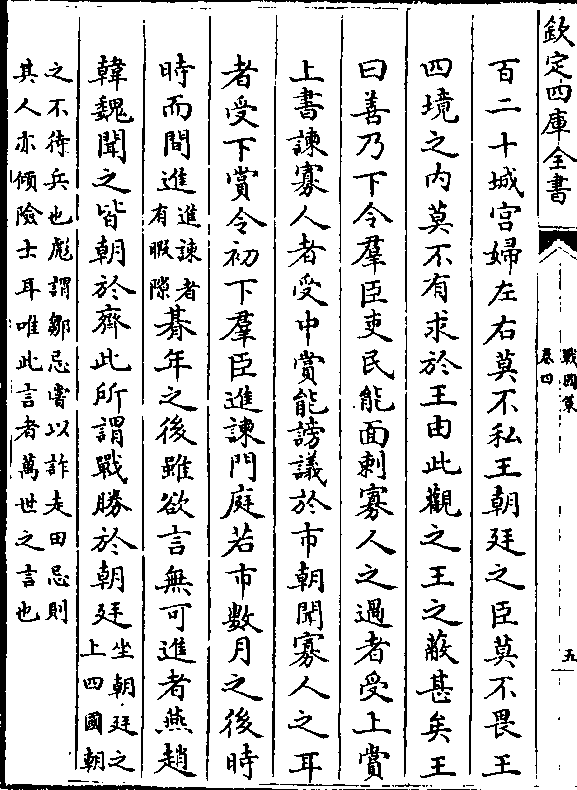 欽定四庫全書
戰國策
卷四
五
百二十城宮婦左右莫不私王朝廷之臣莫不畏王
四境之内莫不有求於王由此觀之王之蔽甚矣王
曰善乃下令羣臣吏民能面刺寡人之過者受上賞
上書諫寡人者受中賞能謗議於市朝聞寡人之耳
者受下賞令初下羣臣進諫門庭若市數月之後時
時而間進進諫者有暇隙朞年之後雖欲言無可進者燕趙
韓魏聞之皆朝於齊此所謂戰勝於朝廷坐朝廷之上四國朝
之不待兵也彪謂鄒忌嘗以詐走田忌則
其人亦傾險士耳唯此言者萬世之言也